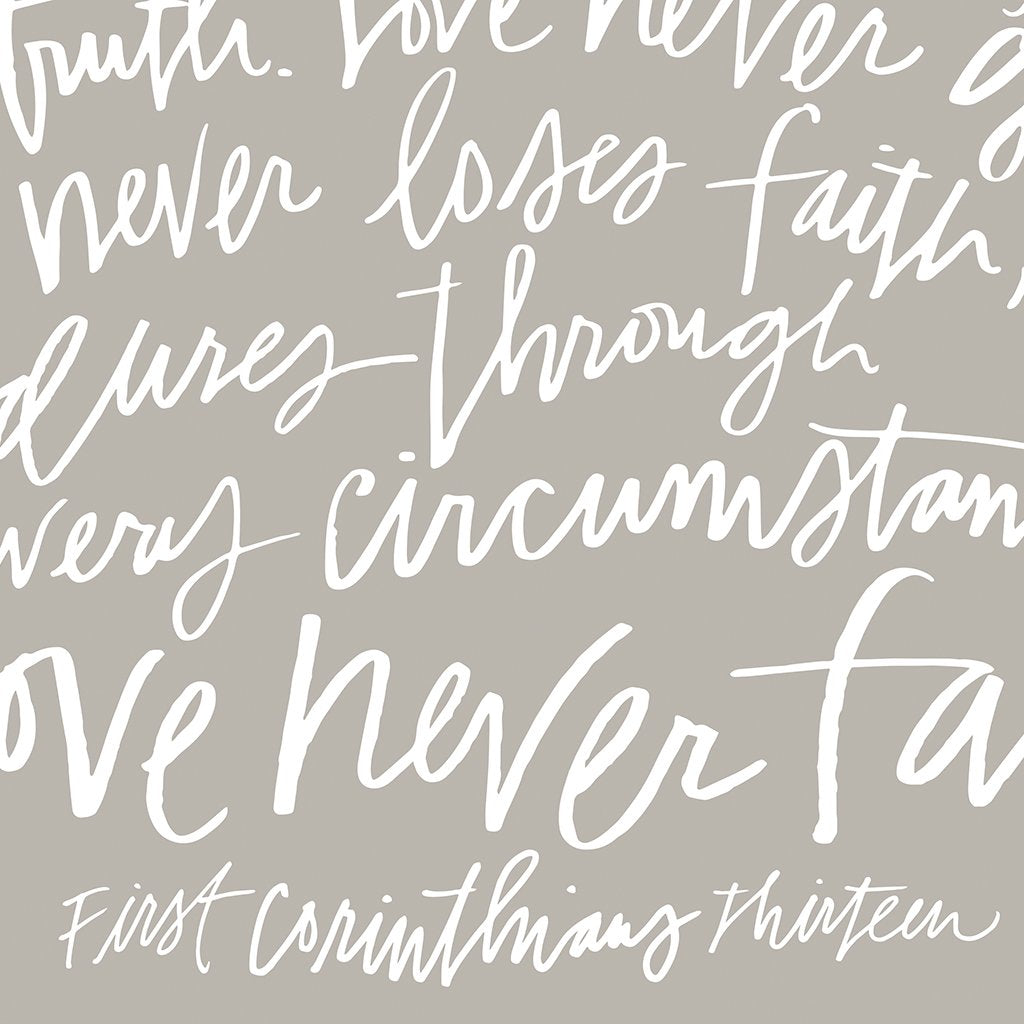 truth. Love never g
never loses faith,
dures through
very circumstan
ove never fa
First Corinthians Thirteen